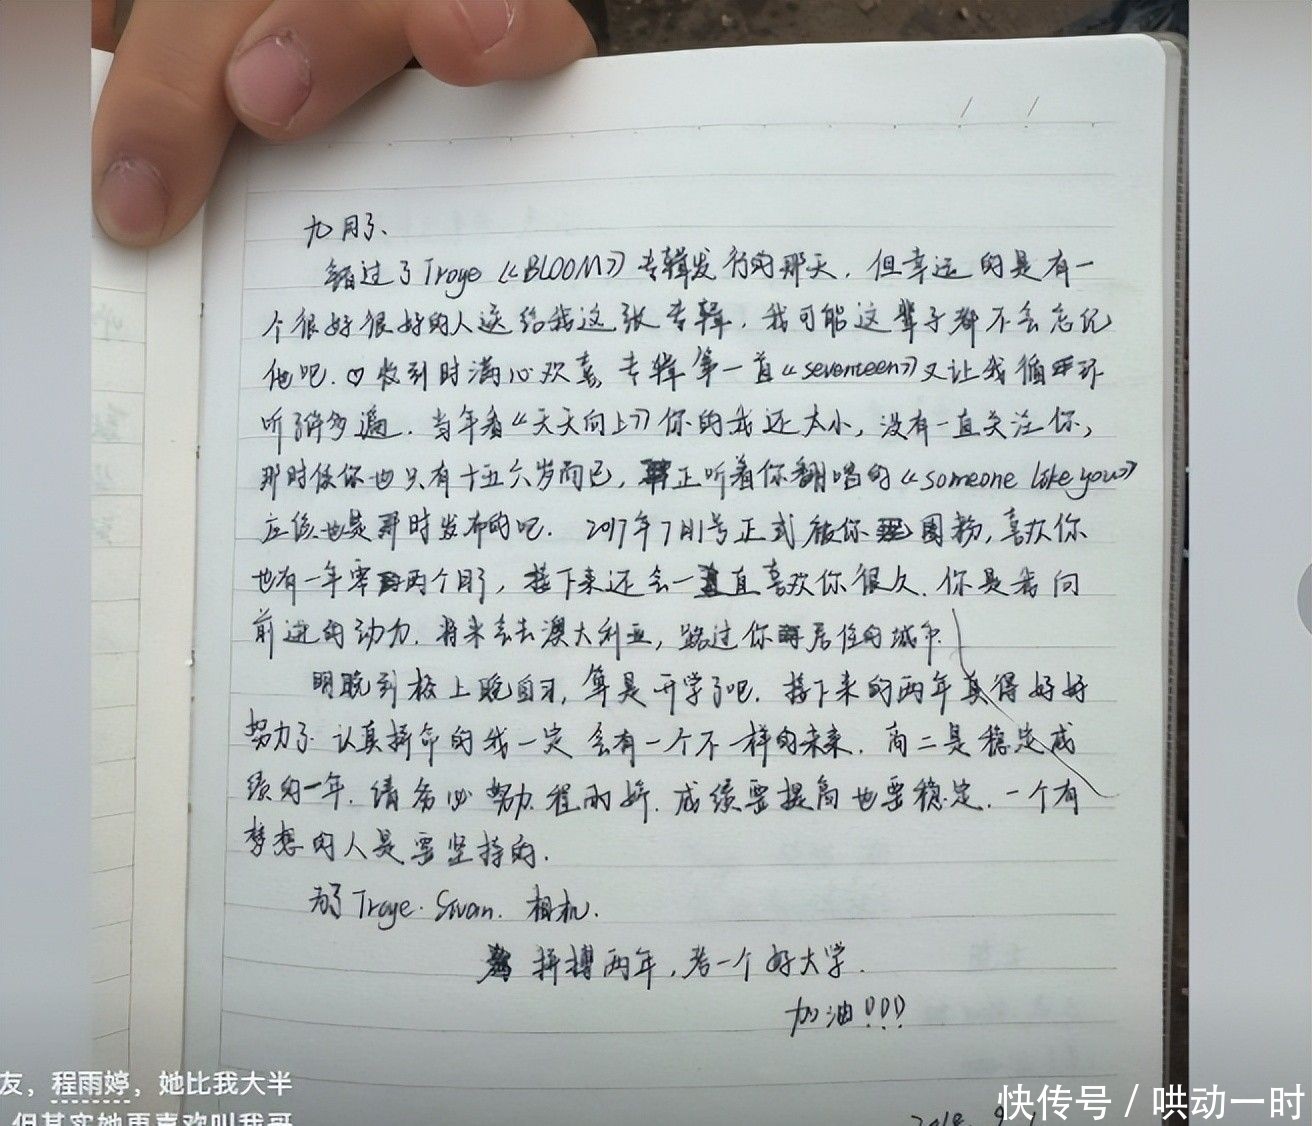 九月了、
错过了Troye《BLOOM》专辑发行的那天.但幸运的是有一
个很好很好的人送给我这张专辑.我可能这辈子都不会忘记
他吧.♡收到时满心欢喜,专辑第一首《seventeen》又让我循环
听了许多遍.当年看《天天向上》你的我还太小,没有一直关注你,
那时候你也只有十五六岁而已,正听着你翻唱的《someone like you》
应该也是那时发布的吧.2017年7月1号正式被你圈粉,喜欢你
也有一年零两个月了,接下来还会一直喜欢你很久.你是我向
前进的动力.将来会去澳大利亚,路过你居住的城市.
明晚到校上晚自习,算是开学了吧.接下来的两年真得好好
努力了.认真拼命的我一定会有一个不一样的未来.高二是稳定成
绩的一年.请务必努力.程雨婷.成绩要提高也要稳定.一个有
梦想的人是要坚持的.
为了Troye.Sivan.相机.
拼搏两年,考一个好大学.
加油!!!
2018.9.
友，程雨婷，她比我大半
但其实她更喜欢叫我哥
快传号 / 哄动一时